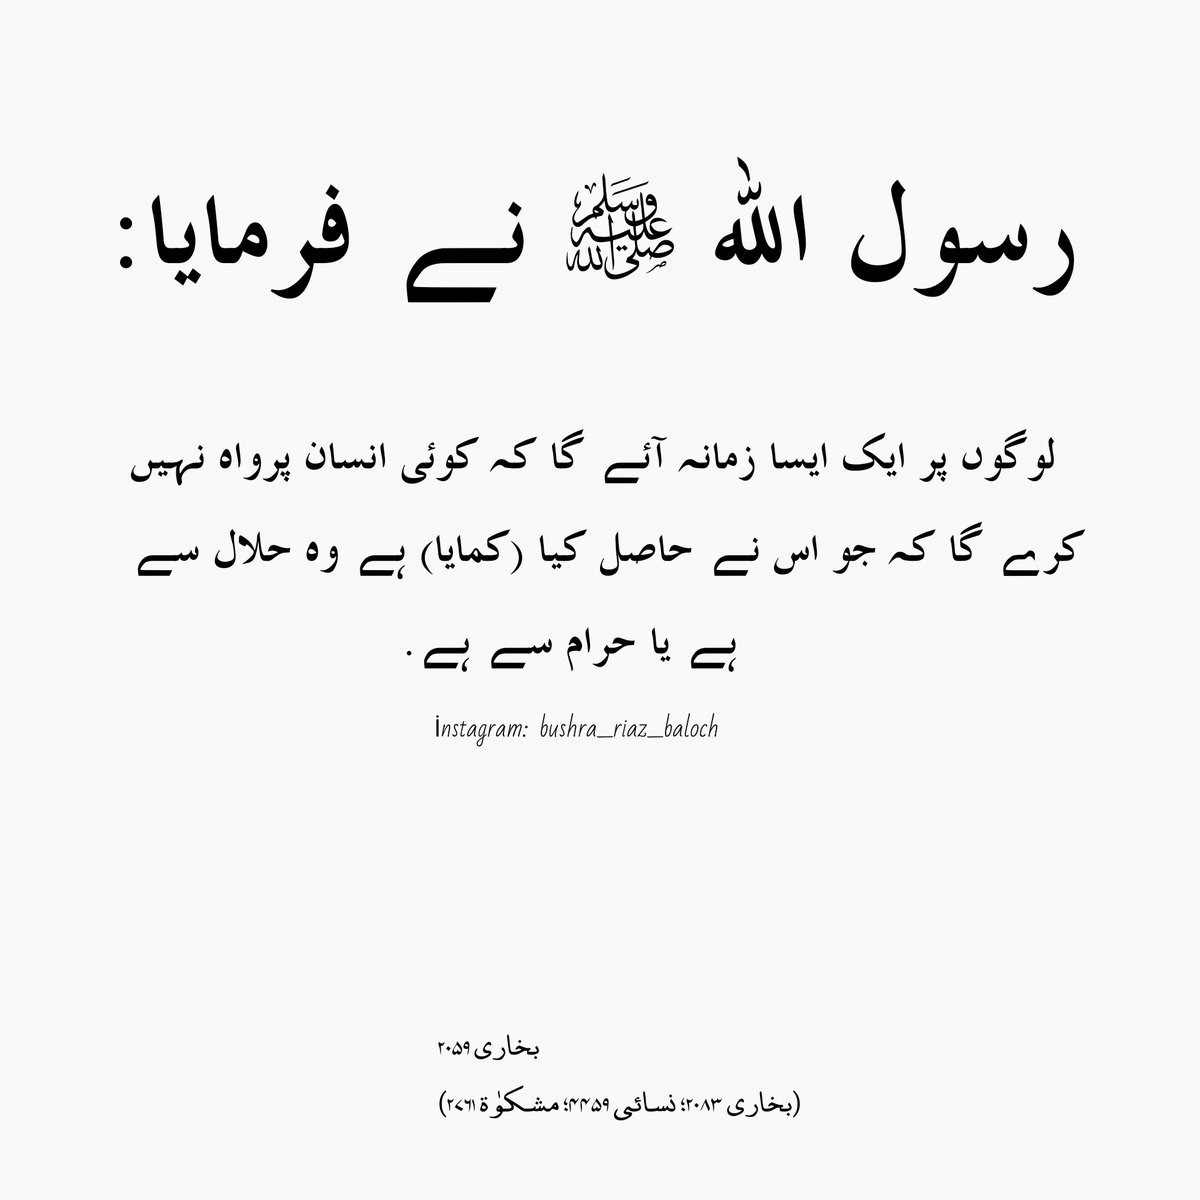 رسول اللہ ﷺ نے فرمایا:
لوگوں پر ایک ایسا زمانہ آئے گا کہ کوئی انسان پرواہ نہیں
کرے گا کہ جو اس نے حاصل کیا (کمایا) ہے وہ حلال سے
ہے یا حرام سے ہے .
instagram: bushra_riaz_baloch
بخاری ۲۰۵۹
(بخاری ۲۰۸۳؛ نسائی ۴۴۵۹؛ مشکوٰۃ ۲۷۶۱)